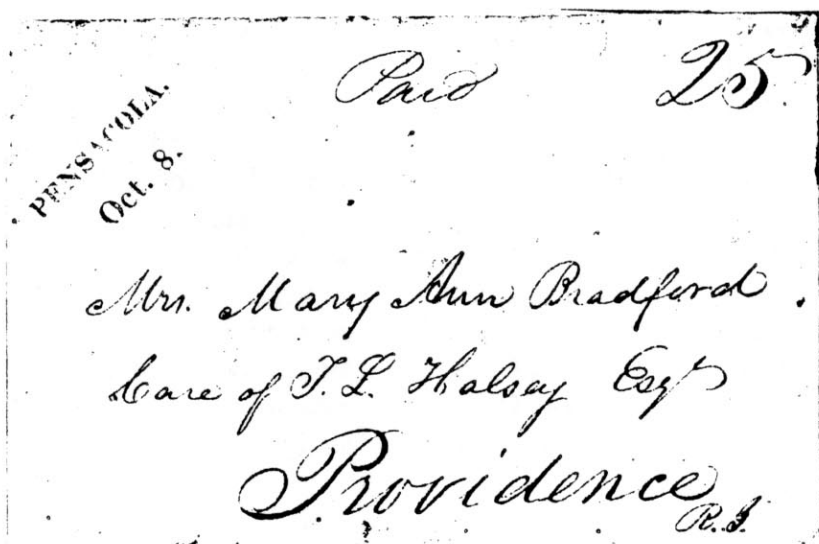 Paid 25.
PENSACOLA.
Oct. 8.
Mrs. Mary Ann Bradford.
Care of T. L. Halsey Esqr
Providence
R. I.